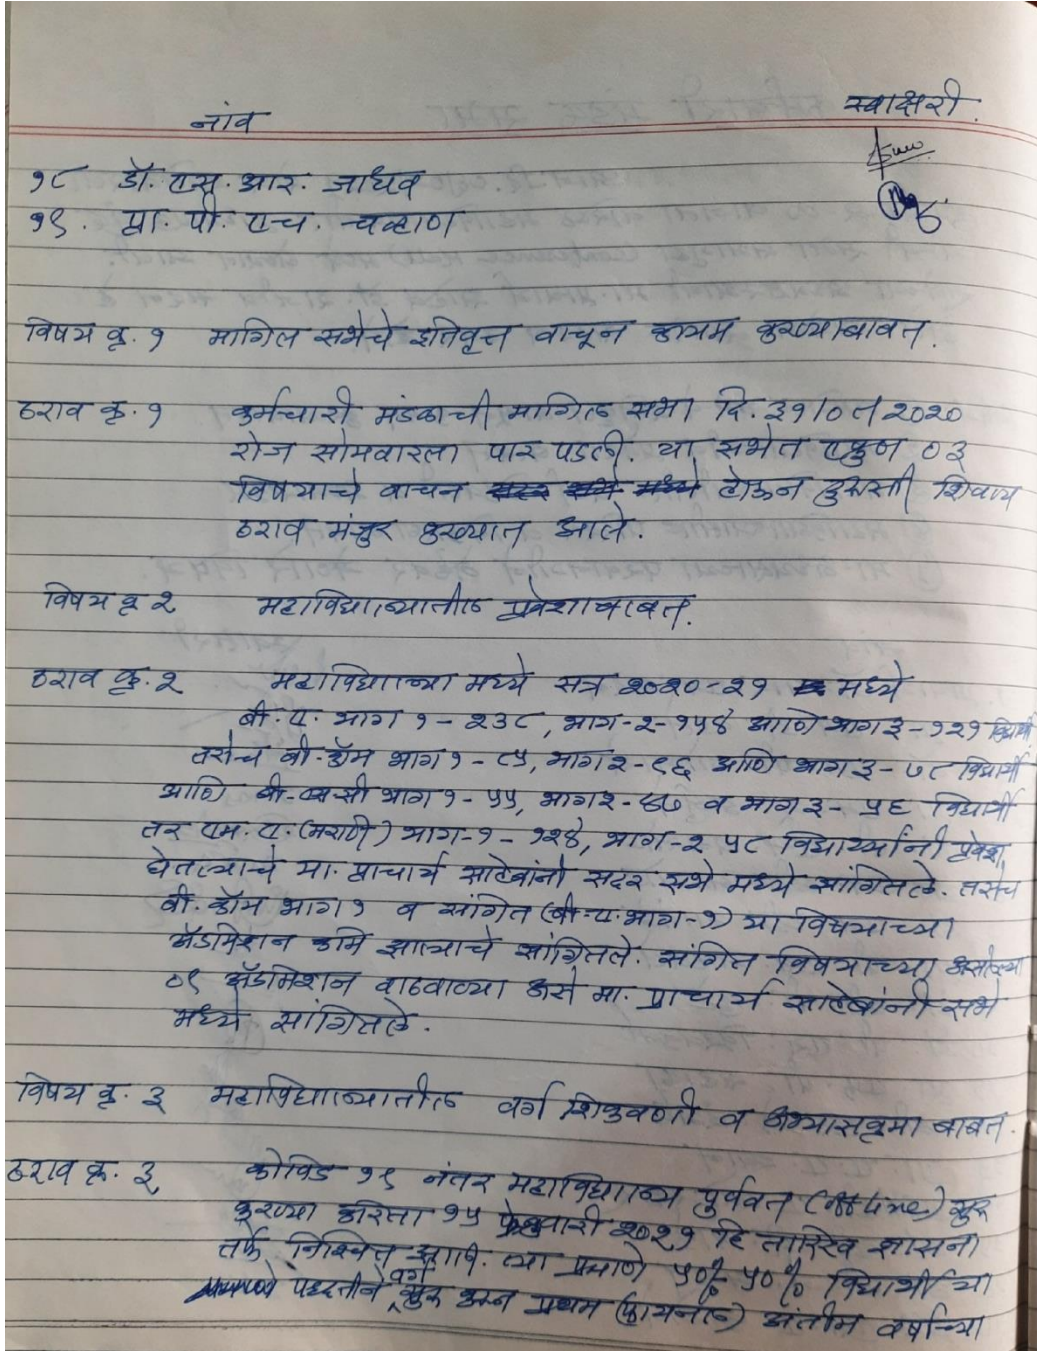 नांव स्वाक्षरी.
१८ डॉ. एस. आर. जाधव
१९. प्रा. पी. एच. चव्हाण
विषय कृ. १ मागिल सभेचे इतिवृत्त वाचून कायम करण्याबाबत.
ठराव कृ. १ कर्मचारी मंडळाची मागिल सभा दि. ३१/०८/2020
रोज सोमवारला पार पडली. या सभेत एकुण ०३
विषयाचे वाचन होऊन दुरूस्ती शिवाय
ठराव मंजुर करण्यात आले.
विषय कृ २ महाविद्यालयातील प्रवेशाबाबत.
ठराव कृ. २ महाविद्यालया मध्ये सत्र २०२०-२१ मध्ये
बी. ए. भाग १ - २३८, भाग-२-१५४ आणि भाग ३-१२१ विद्यार्थी
तसेच बी. कॉम भाग १ - ८५, भाग २-९६ आणि भाग ३-७८ विद्यार्थी
आणि बी-एस-सी भाग १- ५५, भाग २- ६७ व भाग ३- ५६ विद्यार्थी
तर एम. ए. (मराठी) भाग-१ - १२४, भाग-२ ५८ विद्यार्थ्यांनी प्रवेश
घेतल्याचे मा. प्राचार्य साहेबांनी सदर सभे मध्ये सांगितले. तसेच
बी. कॉम भाग १ व संगित (बी-ए-भाग-१) या विषयाच्या
ॲडमिशन कमि झाल्याचे सांगितले. संगित विषयाच्या असलेल्या
०९ ॲडमिशन वाढवाव्या असे मा. प्राचार्य साहेबांनी सभे
मध्ये सांगितले.
विषय कृ. ३ महाविद्यालयातील वर्ग शिकवणी व अभ्यासकृमा बाबत.
ठराव कृ. ३ कोविड १९ नंतर महाविद्यालय पुर्ववत (offline) सुरू
करण्या करिता १५ फेब्रुवारी २०२१ हि तारिख शासना
तर्फे निश्चित झाली. त्या प्रमाणे ५०% ५०% विद्यार्थी या
पद्दतीने वर्ग सुरू करून प्रथम (फायनल) अंतीम वर्षाच्या